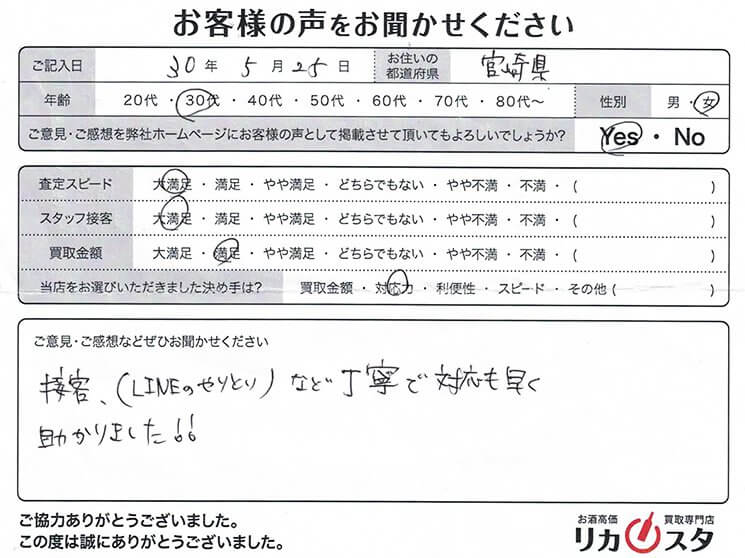 お客様の声をお聞かせください
ご記入日 30年 5月 25日 お住いの都道府県 宮崎県
年齢 20代・30代・40代・50代・60代・70代・80代〜 性別 男・女
ご意見・ご感想を弊社ホームページにお客様の声として掲載させて頂いてもよろしいでしょうか? Yes・No
査定スピード 大満足・満足・やや満足・どちらでもない・やや不満・不満・( )
スタッフ接客 大満足・満足・やや満足・どちらでもない・やや不満・不満・( )
買取金額 大満足・満足・やや満足・どちらでもない・やや不満・不満・( )
当店をお選びいただきました決め手は? 買取金額・対応力・利便性・スピード・その他( )
ご意見・ご感想などぜひお聞かせください
接客、(LINEのやりとり)など丁寧で対応も早く
助かりました!!
ご協力ありがとうございました。
この度は誠にありがとうございました。
お酒高価 買取専門店
リカスタ